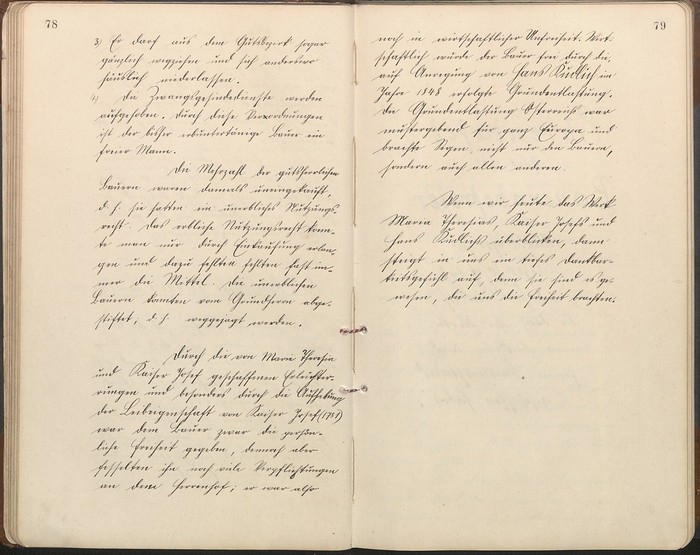 78
3) Er darf aus dem Gutsbezirk sogar
gänzlich wegziehn und sich anderswo
häuslich niederlassen.
4) Die Zwangsgesindedienste werden
aufgehoben. Durch diese Verordnungen
ist der bisher erbuntertänige Bauer ein
freier Mann.
Die Mehrzahl der gutsherrlichen
Bauern waren damals uneingekauft,
d. h. sie hatten ein unerbliches Nutzungs-
recht. Das erbliche Nutzungsrecht konn-
te man nur durch Einkaufung erlan-
gen und dazu fehlten fehlten fast im-
mer die Mittel. Die unerblichen
Bauern konnten vom Grundherrn abge-
stiftet, d. h. weggejagt werden.
Durch die von Maria Theresia
und Kaiser Josef geschaffenen Erleichter-
rungen und besonders durch die Aufhebung
der Leibeigenschaft von Kaiser Josef (1781)
war dem Bauer zwar die persön-
liche Freiheit gegeben, dennoch aber
fesselten ihn noch viele Verpflichtungen
an den Herrenhof; er war also
79
noch in wirtschaftlicher Unfreiheit. Wirt-
schaftlich wurde der Bauer frei durch die,
auf Anregung von Hans Kudlich im
Jahre 1848 erfolgte Grundentlastung.
Die Grundentlastung Österreichs war
mustergebend für ganz Europa und
brachte Segen nicht nur den Bauern,
sondern auch allen anderen.
Wenn wir heute das Werk
Maria Theresias, Kaiser Josefs und
Hans Kudlichs überblicken, dann
steigt in uns ein tiefes Dankbar-
keitsgefühl auf, denn sie sind es ge-
wesen, die uns die Freiheit brachten.